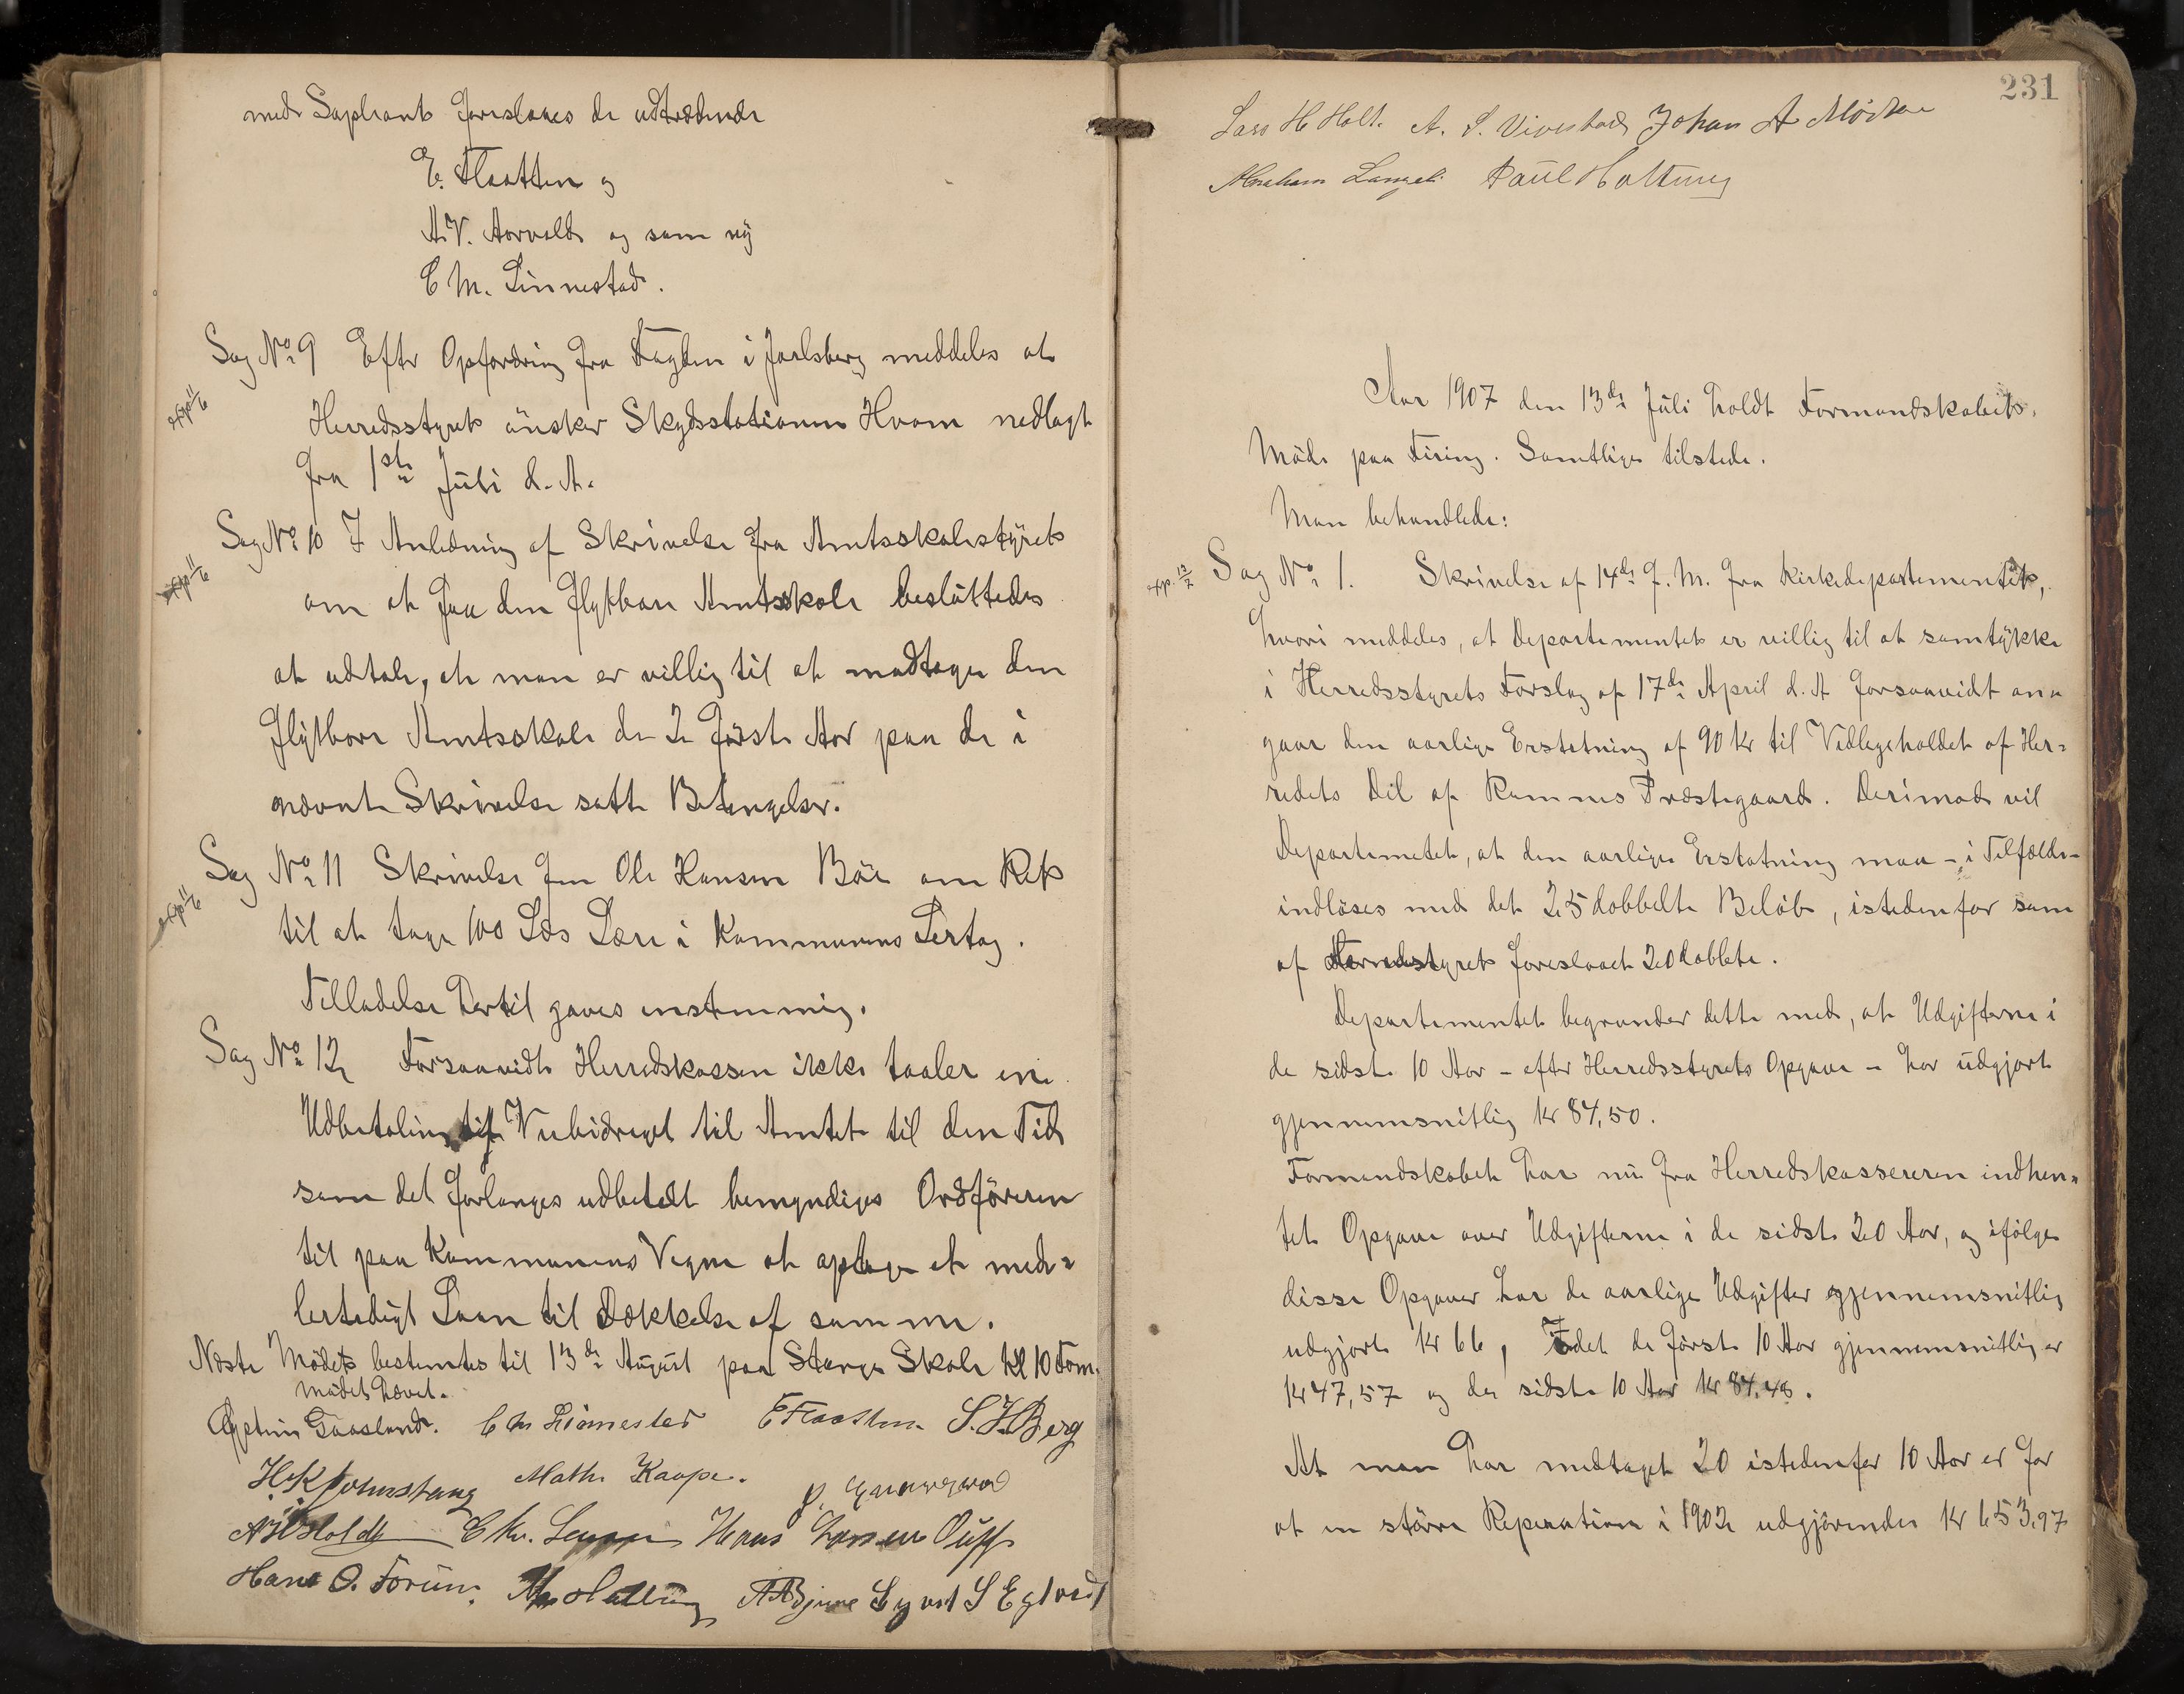 med Supleant foreslaaes de udtrædende
E. Flaatten og
A.V. Aorvold og som ny
C M. Linnestad.
Sag No 9 Efter Opfordring fra Fogden i Jarlsberg meddeles at
exp 11/6
Herredsstyret önsker Skydsstationen Hvam nedlagt
fra 1ste Juli d. A.
Sag No 10 I Anledning af Skrivelse fra Amtsskolestyret
exp 11/6
om at faa den flytbare Amtsskole besluttedes
at udtale, at man er villig til at modtage den
flytbare Amtsskole de 2 første Aar paa de i
nævnte Skrivelse satte Betingelser.
Sag No 11 Skrivelse fra Ole Hansen Böe om Ret
exp 11/6
til at tage 100 Læs Lere i Kommunens Lertag.
Tilladelse dertil gaves enstemmig.
Sag No 12 Forsaavidt Herredskassen ikke taaler en
Udbetaling af Veibidraget til Amtet til den Tid
som det forlanges udbetalt bemyndiges Ordföreren
til paa Kommunens Vegne at optage et mid=
lertidigt Laan til Dækkelse af samme.
Næste Mödet bestemtes til 13de August paa Stange Skole kl 10 Fom.
Mödet hævet.
Gaasland. C M Linnestad E Flaatten S. J. Berg
H. K Johnstang Mathi Kaape.
A Holdt Chr. Hans Larsen
Hans O. Forum. Hottung A Bjune Syvert S
231
Lars H Holt. A. S. Vivestad Johan A
Abraham Langeli Paul Hottung
Aar 1907 den 13de Juli holdt Formandskabet
Möde paa Firing. Samtlige tilstede.
Man behandlede:
exp. 12/7 Sag No 1. Skrivelse af 14de f. M. fra Kirkedepartementet,
hvori meddeles, at Departementet er villig til at samtykke
i Herredsstyrets Forslag af 17de April d. A forsaavidt an=
gaar den aarlige Erstatning af 90 kr til Vedligeholdet af Her=
redets Del af Ramnes Præstegaard. Derimod vil
Departemetet, at den aarlige Erstatning maa - i Tilfælde -
indlöses med det 25 dobbelte Belöb, istedenfor som
af Herredsstyret foreslaaet 20 doblete.
Departementet begrunder dette med, at Udgifterne i
de sidste 10 Aar - efter Herredsstyrets Opgave - har udgjort
gjennemsnitlig kr 84,50.
Formandskabet har nu fra Herredskassereren indhen=
tet Opgave over Udgifterne i de sidste 20 Aar, og ifölge
disse Opgaver har de aarlige Udgifter gjennemsnitlig
udgjort kr 66, Idet de förste 10 Aar gjennemsnitlig er
kr 47,57 og de sidste 10 Aar kr 84,48.
At man har medtaget 20 istedenfor 10 Aar er for
at en större Reperation i 1902 udgjörende kr 653,97